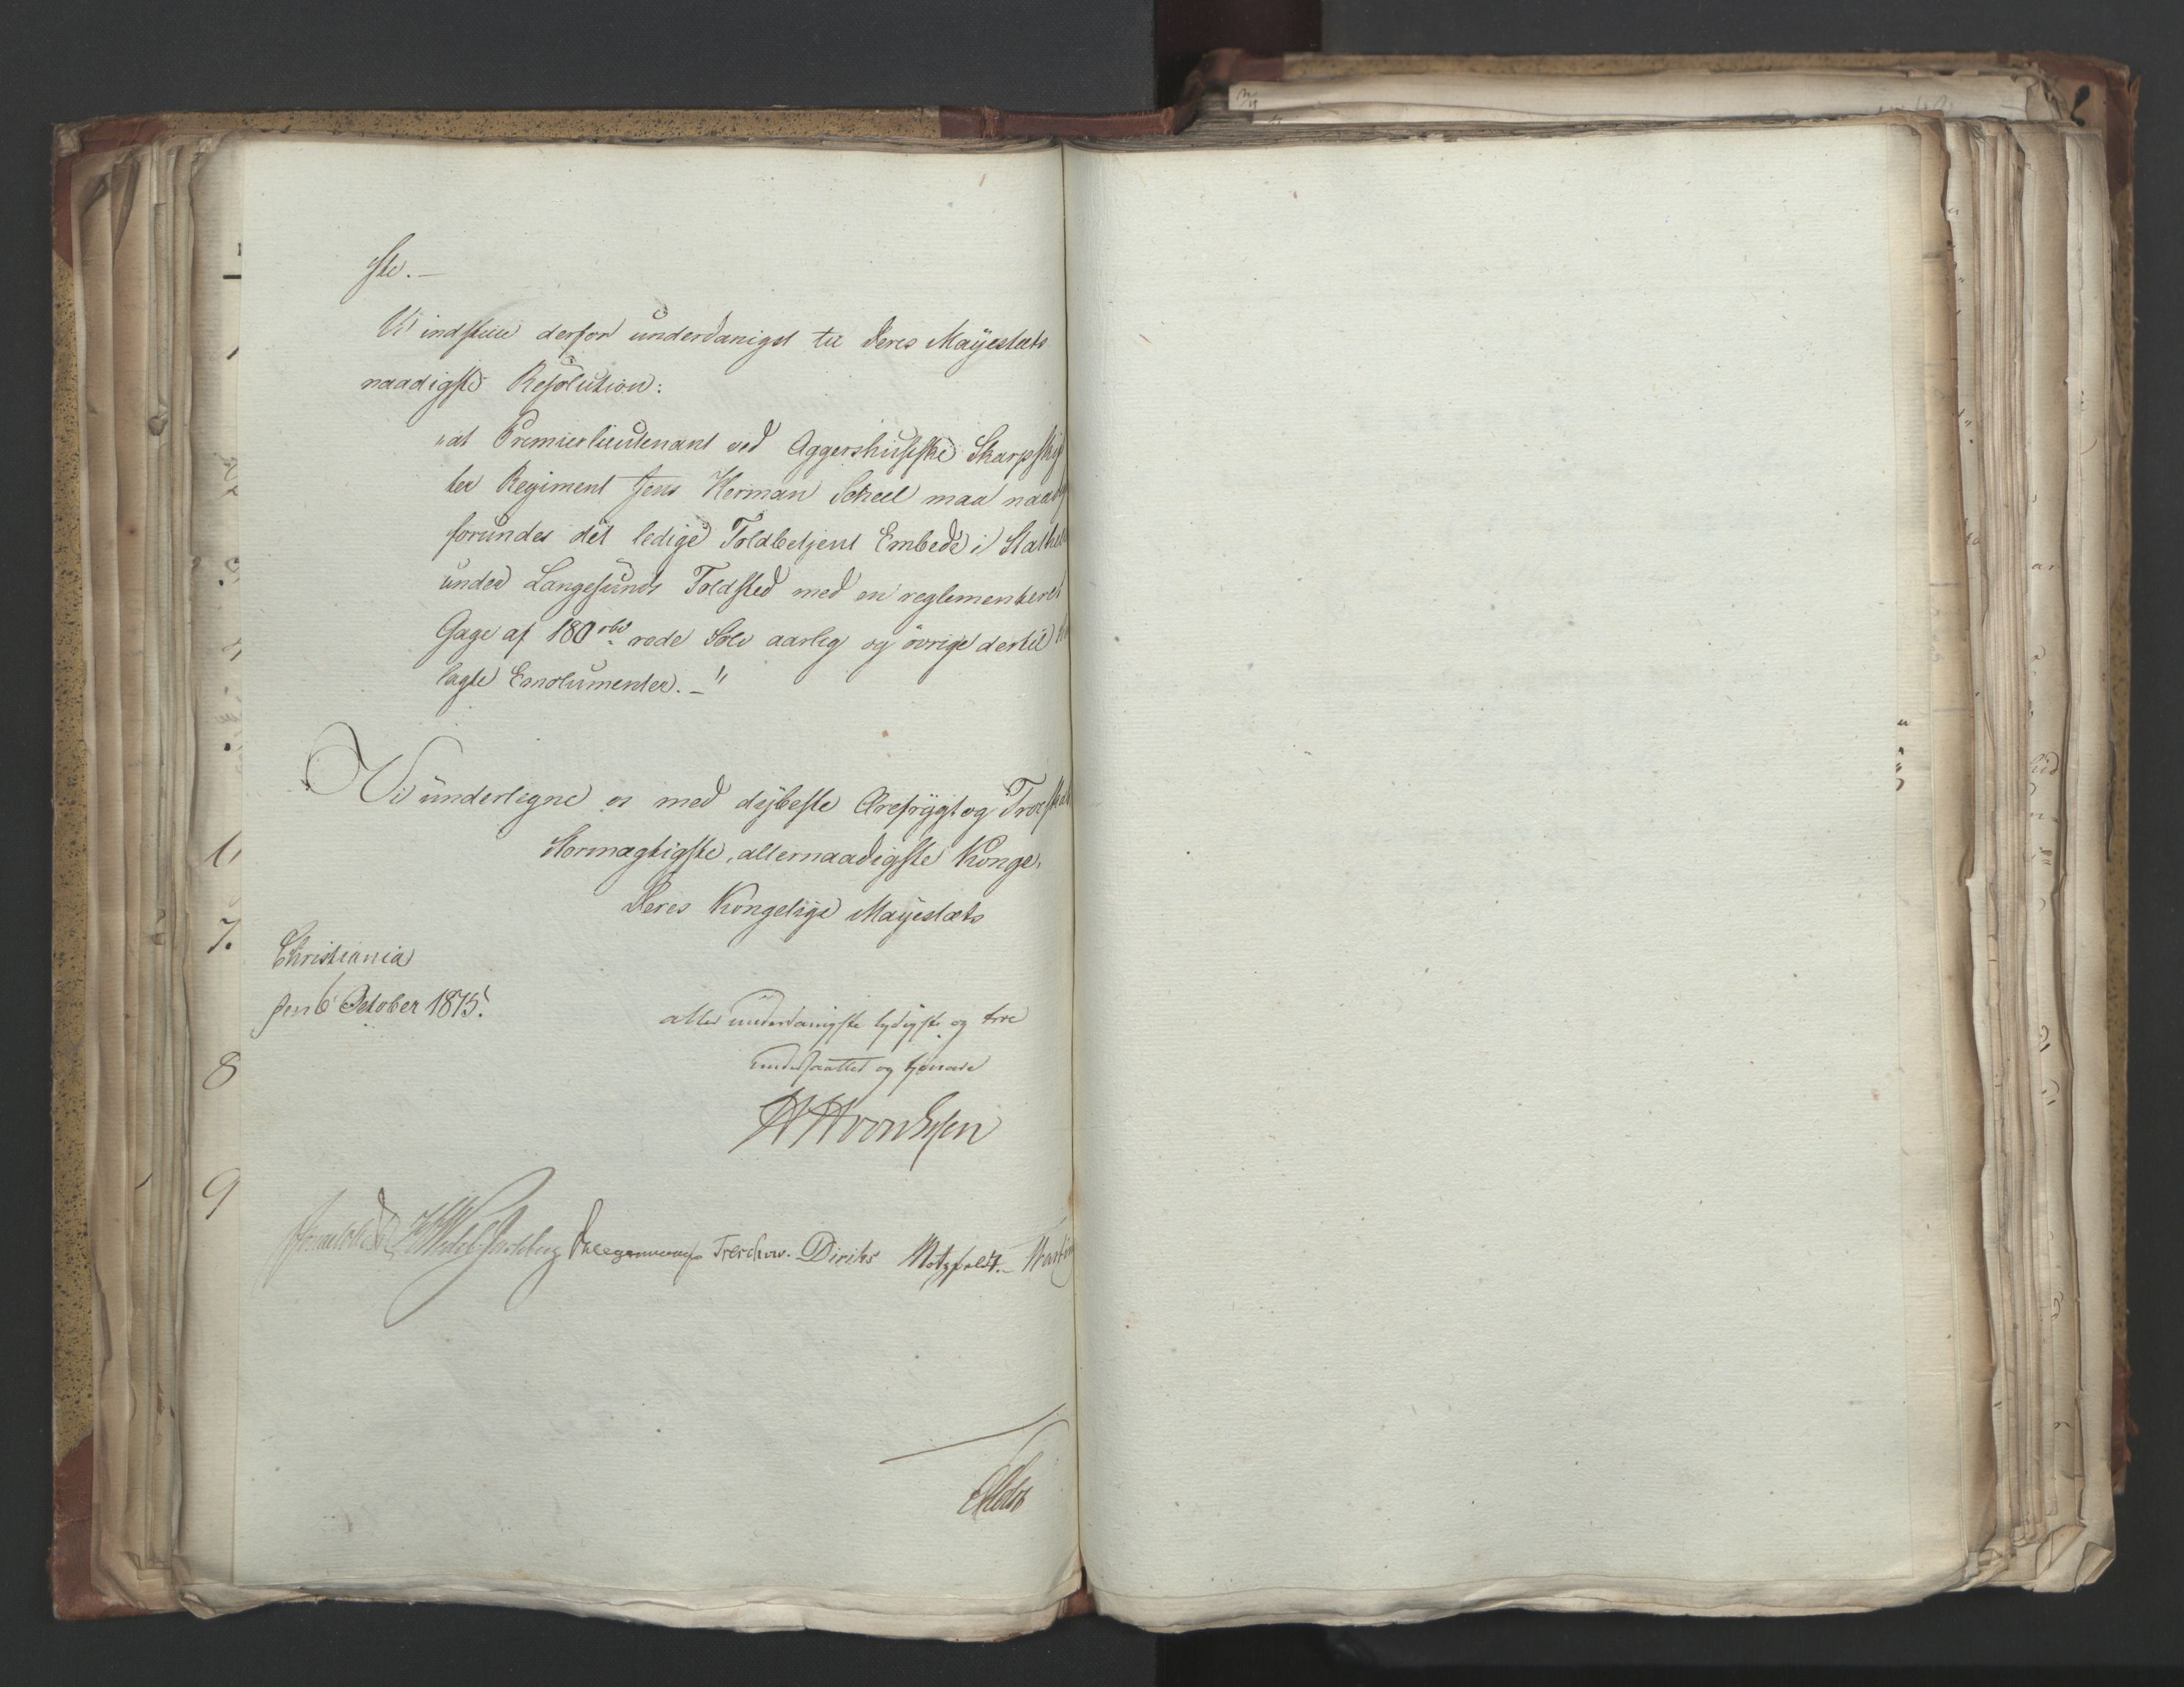 ste. —
Vi indstille derfor underdanigst til Deres Mayestæts
naadigste Resolution:
"at Premierlieutenant ved Aggershusiske Skarpsky
ter Regiment Jens Herman Scheel maa naadg
forundes det ledige Toldbetjent Embede i Stathel
under Langesunds Toldsted med en reglementeret
Gage af 180 rbd rede Sölv aarlig og övrige dertil
lagte Emolumenter. — "
Vi undertegne os med dybeste Ærefrygt og Troeskab
Stormægtigste, allernaadigste Konge,
Deres Kongelige Mayestæts
Christiania
den 6 October 1815.
aller underdanigste lydigste og troe
undersaatter og tjenere
HHvonEssen
HWedel Jarlsberg
Treschow. Diriks Motzfeldt. —
1,
7.
8
9